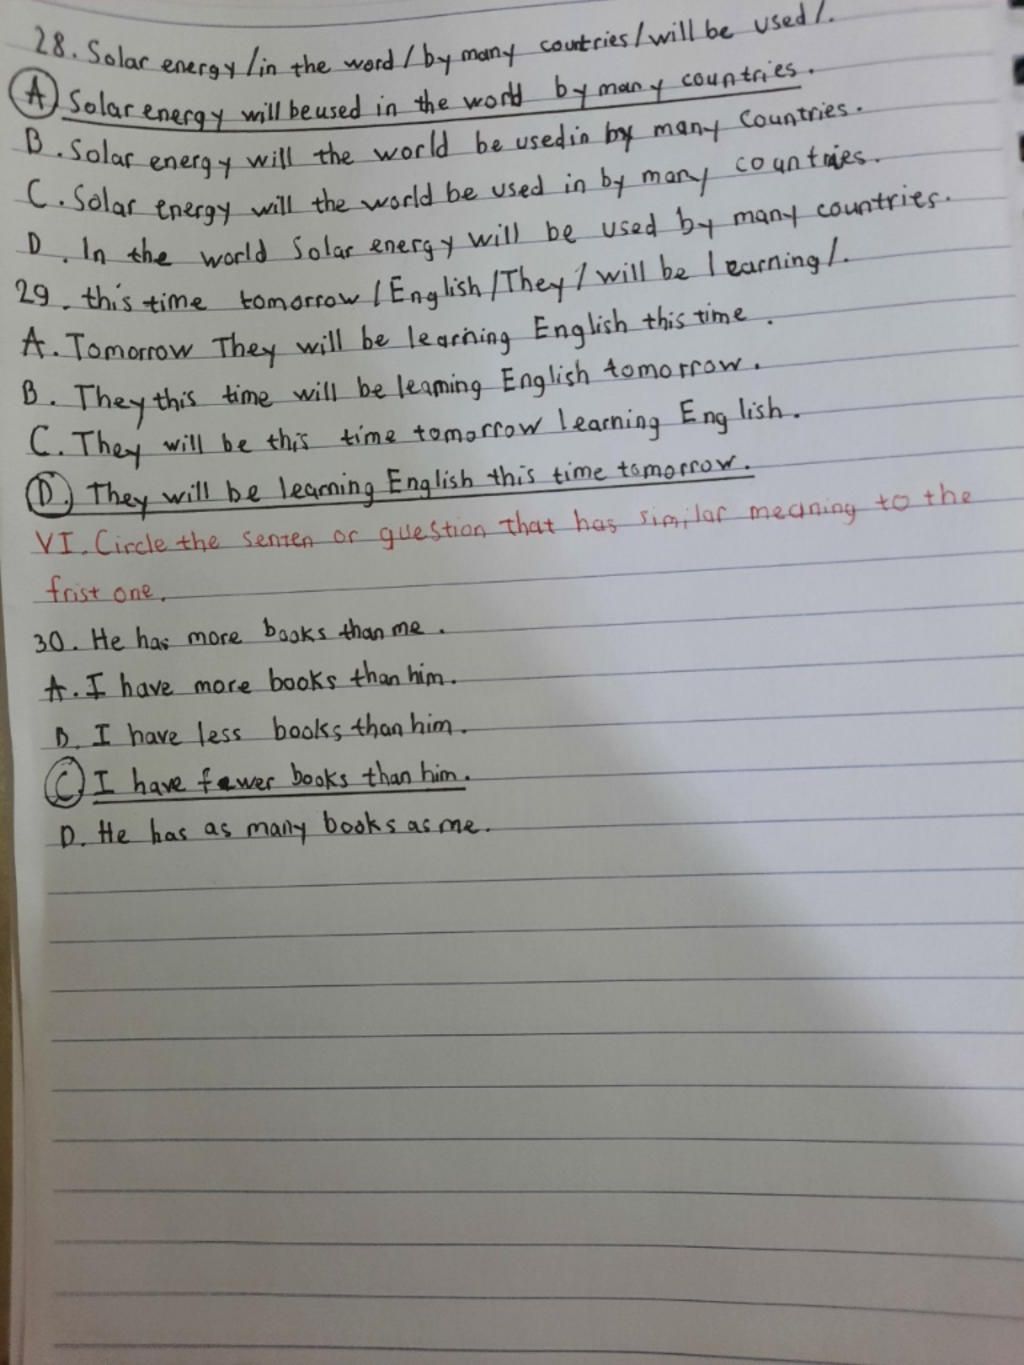 28. Solar energy /in the word / by many countries / will be used /.
A) Solar energy will be used in the world by many countries.
B. Solar energy will the world be used in by many Countries.
C. Solar energy will the world be used in by many countries.
D. In the world Solar energy will be used by many countries.
29. this time tomorrow / English / They / will be learning /.
A. Tomorrow They will be learning English this time.
B. They this time will be learning English tomorrow.
C. They will be this time tomorrow learning English.
D.) They will be learning English this time tomorrow.
VI. Circle the senten or question that has similar meaning to the
frist one.
30. He has more books than me.
A. I have more books than him.
B. I have less books than him.
C) I have fewer books than him.
D. He has as many books as me.